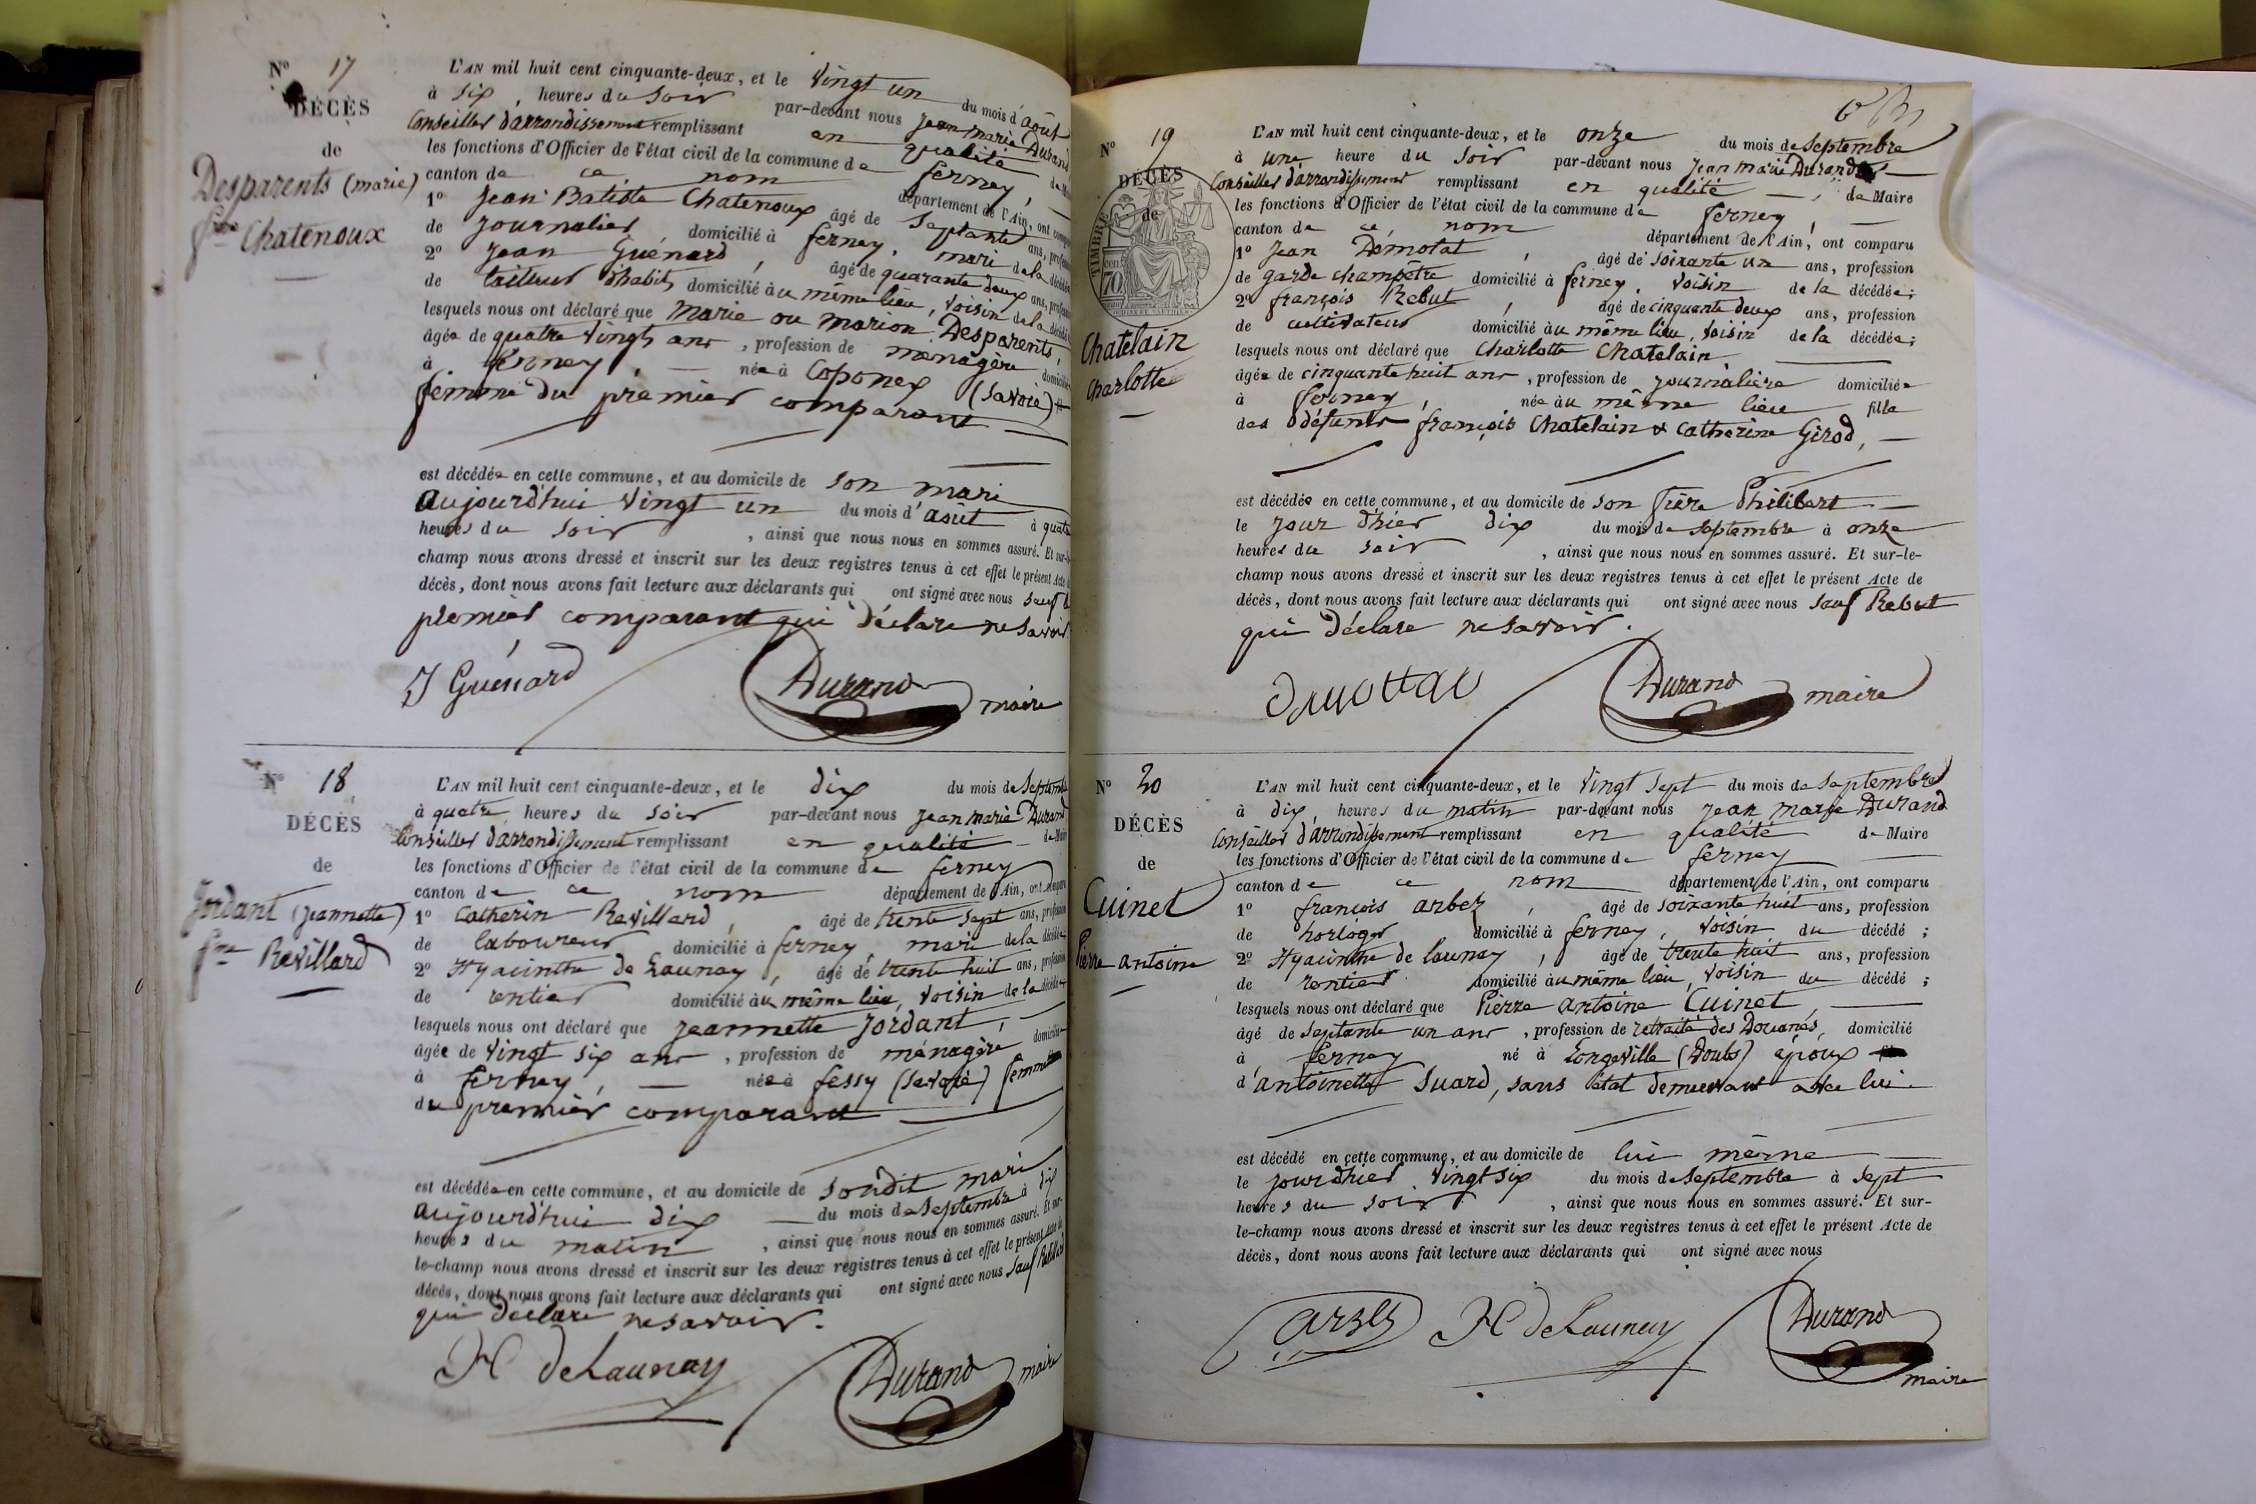 N° 17
DÉCÈS
de
Desparents (marie)
fme Chatenoux
L'AN mil huit cent cinquante-deux, et le Vingt un du mois d'août
à six, heures du soir par-devant nous jean marie Durand
Conseiller d'arrondissement remplissant en qualité de
les fonctions d'Officier de l'état civil de la commune de ferney,
canton de ce nom département de l'Ain, ont
1° Jean Batiste Chatenoux âgé de septante ans,
de journalier domicilié à ferney, mari de la
2° Jean Guénard, âgé de quarante deux ans,
de tailleur d'habits domicilié au même lieu, voisin de la
lesquels nous ont déclaré que marie ou marion Desparents,
âgée de quatre vingts ans, profession de ménagère
à ferney, née à Coponex (Savoie)
femme du premier comparant
est décédée en cette commune, et au domicile de son mari
aujourd'hui vingt un du mois d'août à
heures du soir, ainsi que nous nous en sommes assuré. Et sur-le-
champ nous avons dressé et inscrit sur les deux registres tenus à cet effet le présent Acte
décès, dont nous avons fait lecture aux déclarants qui ont signé avec nous sauf
premier comparant qui déclare ne savoir
J Guénard Durand maire
N° 18
DÉCÈS
de
Jordant (jeannette)
fme Revillard
L'AN mil huit cent cinquante-deux, et le dix du mois de
à quatre heures du soir par-devant nous jean marie Durand
Conseiller d'arrondissement remplissant en qualité de
les fonctions d'Officier de l'état civil de la commune de ferney
canton de ce nom département de l'Ain, ont
1° Catherin Revillard, âgé de trente sept ans,
de laboureur domicilié à ferney, mari de la
2° Hyacinthe de Launay, âgé de trente huit ans,
de rentier domicilié au même lieu, voisin de la
lesquels nous ont déclaré que jeannette Jordant,
âgée de vingt six ans, profession de ménagère
à ferney, née à fessy (Savoie) femme
du premier comparant
est décédée en cette commune, et au domicile de sondit mari
aujourd'hui dix du mois de septembre à dix
heures du matin, ainsi que nous nous en sommes assuré. Et sur-
le-champ nous avons dressé et inscrit sur les deux registres tenus à cet effet le présent Acte
décès, dont nous avons fait lecture aux déclarants qui ont signé avec nous sauf
qui déclare ne savoir.
H deLaunay Durand maire
N° 19
DÉCÈS
de
TIMBRE
70
Chatelain
Charlotte
L'AN mil huit cent cinquante-deux, et le onze du mois de septembre
à une heure du soir par-devant nous jean marie Durand
Conseiller d'arrondissement remplissant en qualité, de Maire
les fonctions d'Officier de l'état civil de la commune de ferney,
canton de ce nom département de l'Ain, ont comparu
1° Jean Démotat, âgé de soixante un ans, profession
de garde champêtre domicilié à ferney, voisin de la décédée;
2° françois Rebut, âgé de cinquante deux ans, profession
de cultivateur domicilié au même lieu, voisin de la décédée;
lesquels nous ont déclaré que Charlotte Chatelain
âgée de cinquante huit ans, profession de journalière domiciliée
à ferney, née au même lieu fille
des défunts françois Chatelain & Catherine Girod,
est décédée en cette commune, et au domicile de son frère Philibert
le jour d'hier dix du mois de septembre à onze
heures du soir, ainsi que nous nous en sommes assuré. Et sur-le-
champ nous avons dressé et inscrit sur les deux registres tenus à cet effet le présent Acte de
décès, dont nous avons fait lecture aux déclarants qui ont signé avec nous sauf Rebut
qui déclare ne savoir.
Durand maire
N° 20
DÉCÈS
de
Cuinet
Pierre antoine
L'AN mil huit cent cinquante-deux, et le vingt sept du mois de septembre
à dix, heures du matin par-devant nous jean marie Durand
Conseiller d'arrondissement remplissant en qualité de Maire
les fonctions d'Officier de l'état civil de la commune de ferney
canton de ce nom département de l'Ain, ont comparu
1° françois arbez, âgé de soixante huit ans, profession
de horloger domicilié à ferney, voisin du décédé;
2° Hyacinthe de launay, âgé de trente huit ans, profession
de rentier domicilié au même lieu, voisin du décédé;
lesquels nous ont déclaré que Pierre antoine Cuinet,
âgé de septante un ans, profession de retraité des Douanes, domicilié
à ferney né à Longeville (Doubs) époux
d'antoinette Suard, sans état demeurant avec lui.
est décédé en cette commune, et au domicile de lui même
le jour d'hier vingt six du mois de septembre à sept
heures du soir, ainsi que nous nous en sommes assuré. Et sur-
le-champ nous avons dressé et inscrit sur les deux registres tenus à cet effet le présent Acte de
décès, dont nous avons fait lecture aux déclarants qui ont signé avec nous
arbez H deLaunay Durand
maire